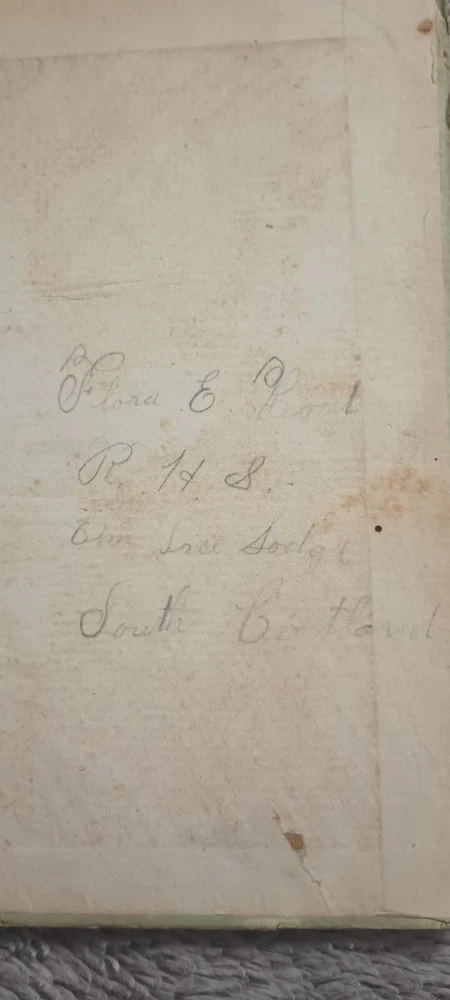 Flora E
R. H. S.
Elm Tree Lodge
South Cortland